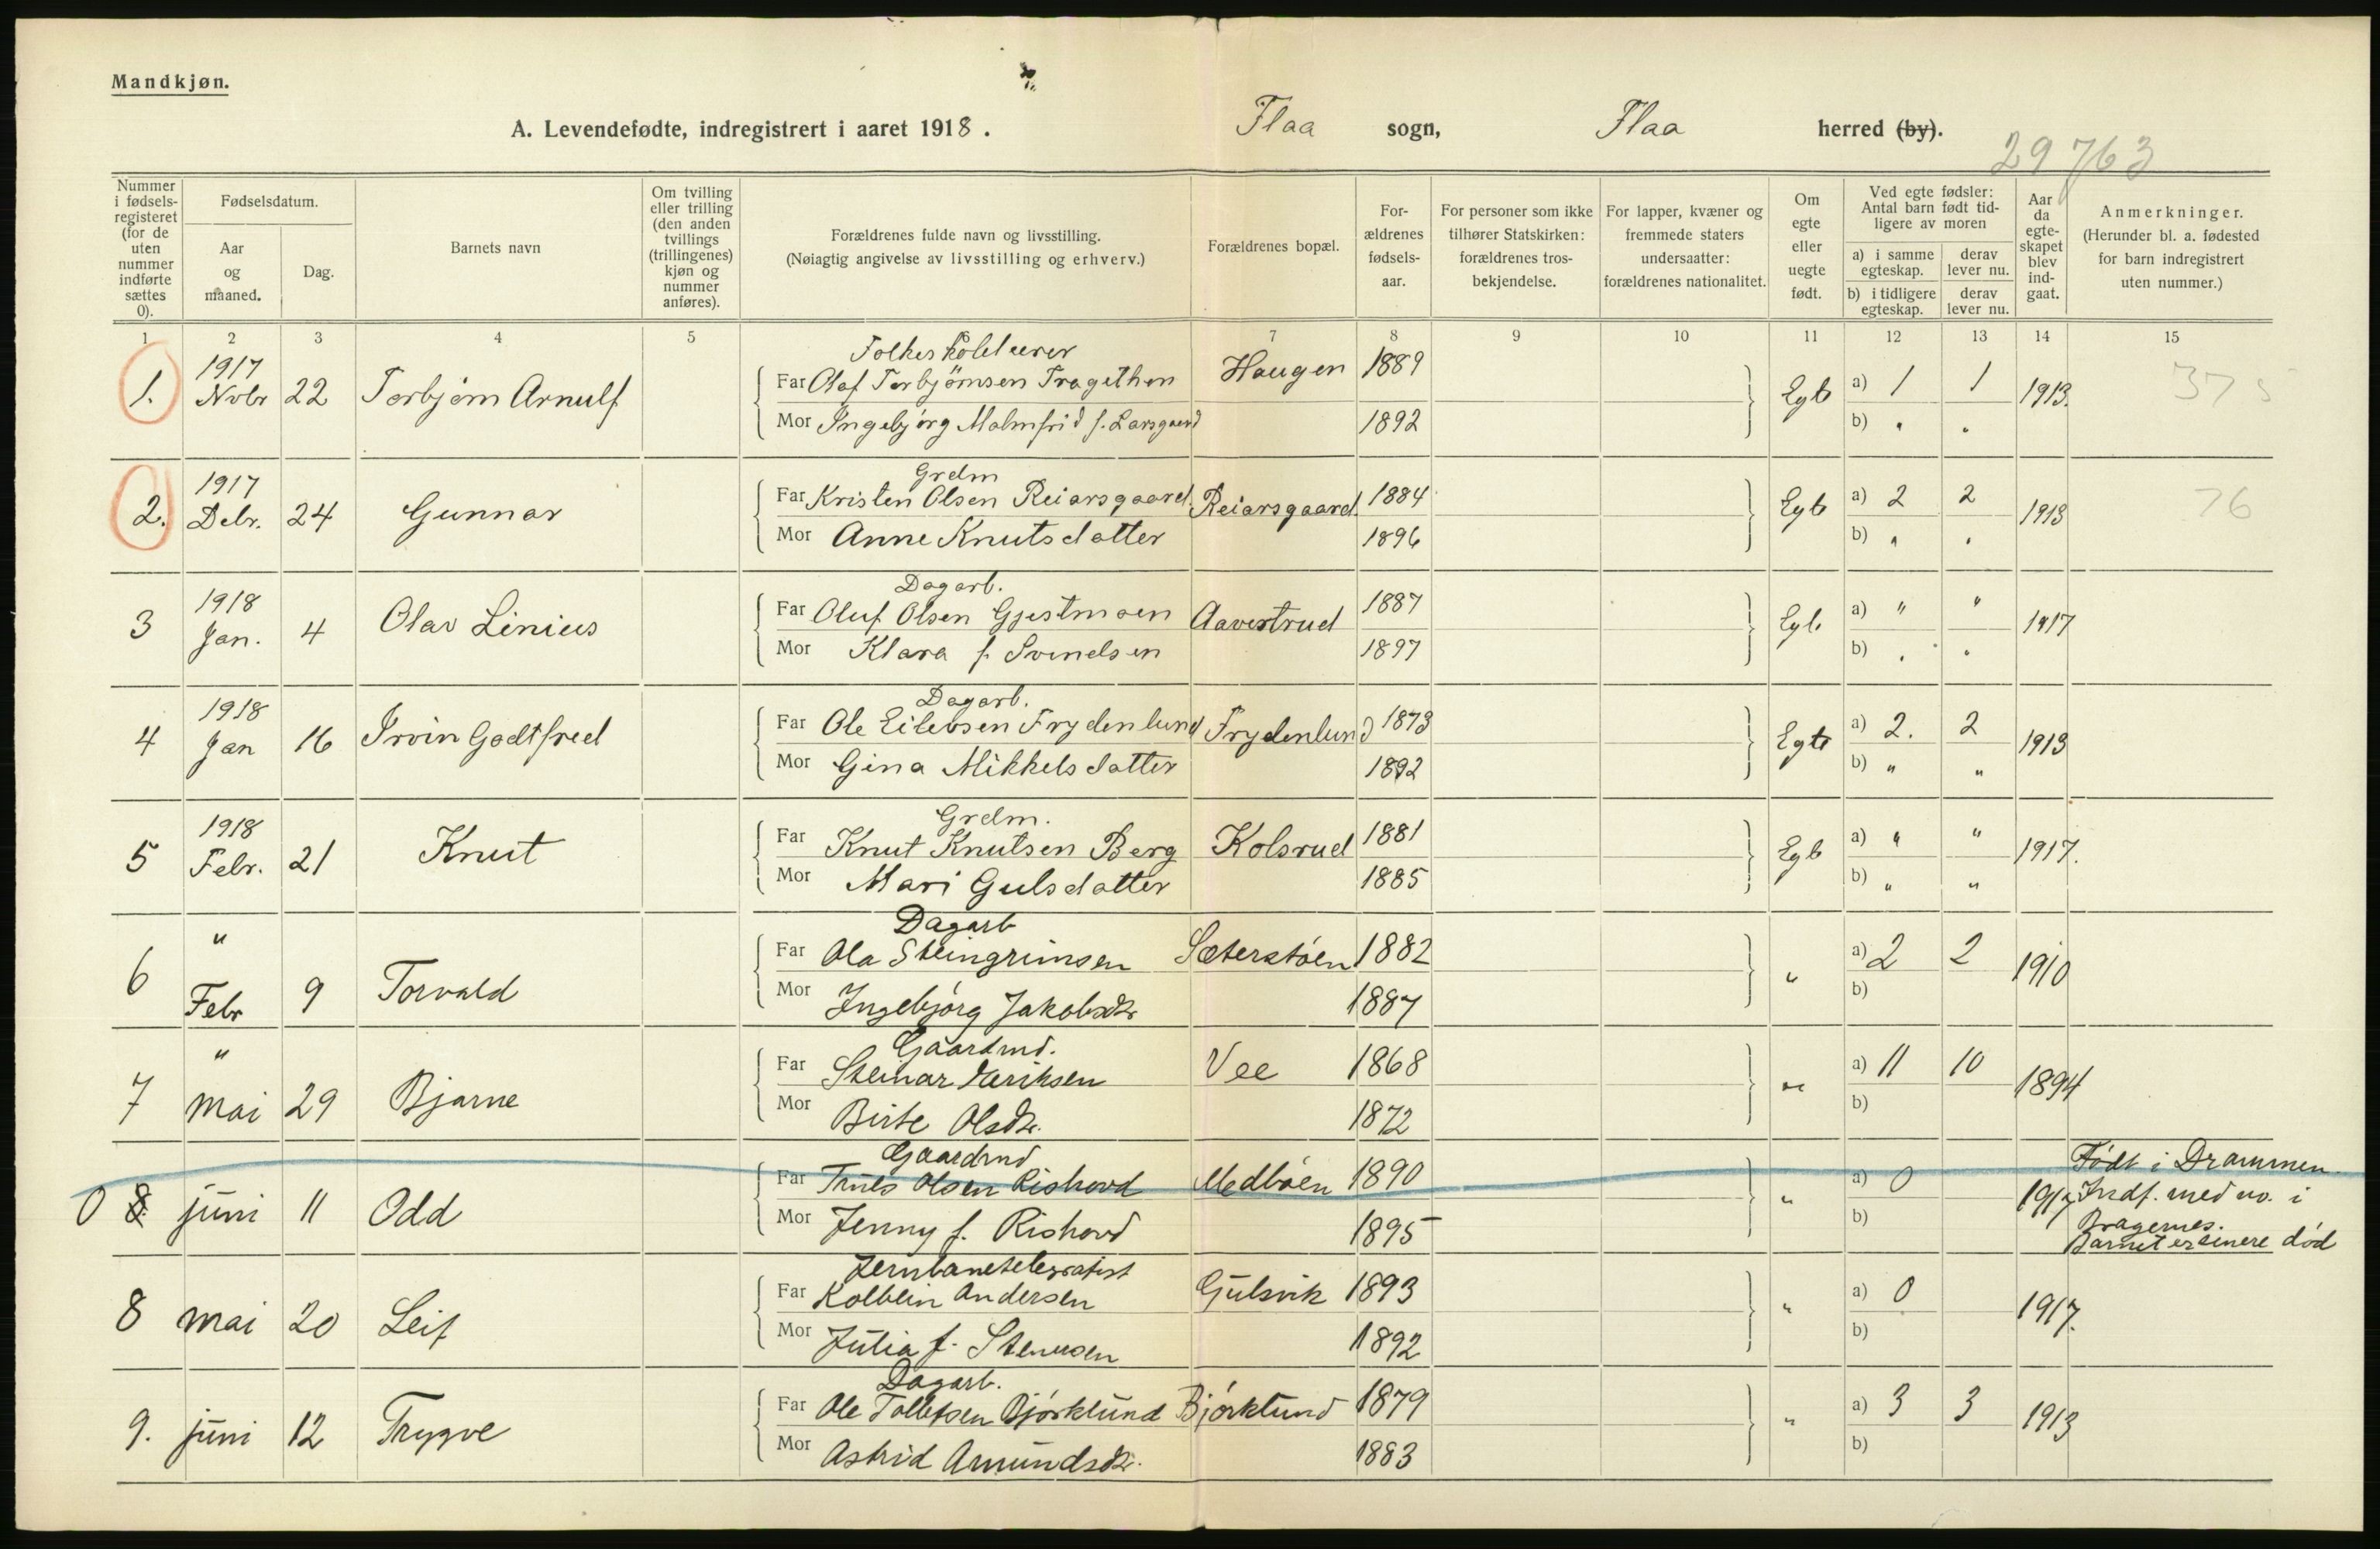 Mandkjøn.
A. Levendefødte, indregistrert i aaret 1918. Flaa sogn, Flaa herred (by).
29763
Nummer i fødsels-registeret (for de uten nummer indførte sættes 0).
Fødselsdatum.
Aar og maaned.
Dag.
Barnets navn
Om tvilling eller trilling (den anden tvillings (trillingenes) kjøn og nummer anføres).
Forældrenes fulde navn og livsstilling.
(Nøiagtig angivelse av livsstilling og erhverv.)
Forældrenes bopæl.
For-ældrenes fødsels-aar.
For personer som ikke tilhører Statskirken: forældrenes tros-bekjendelse.
For lapper, kvæner og fremmede staters undersaatter: forældrenes nationalitet.
Om egte eller uegte født.
Ved egte fødsler: Antal barn født tid-ligere av moren
a) i samme egteskap. derav lever nu.
b) i tidligere egteskap. derav lever nu.
Aar da egte-skapet blev ind-gaat.
Anmerkninger.
(Herunder bl. a. fødested for barn indregistrert uten nummer.)
1 2 3 4 5 7 8 9 10 11 12 13 14 15
Folkeskolelærer
1. 1917 Novbr 22 Torbjørn Arnulf Far Olaf Torbjörnsen Tragethon Haugen 1889 Egte a) 1 1 1913. 375
Mor Ingebjørg Malmfrid f. Larsgaard 1892 b) " "
Grdm
2. 1917 Debr. 24 Gunnar Far Kristen Olsen Reiarsgaard Reiarsgaard 1884 Egte a) 2 2 1913 76
Mor Anne Knutsdatter 1896 b) " "
Dagarb.
3 1918 Jan. 4 Olav Linius Far Oluf Olsen Gjestmoen Aavestrud 1887 Egte a) " " 1917
Mor Klara f. Svendsen 1897 b) " "
Dagarb.
4 1918 Jan 16 Irvin Godtfred Far Ole Eilevsen Frydenlund Frydenlund 1873 Egte a) 2. 2 1913
Mor Gina Mikkelsdatter 1892 b) " "
Grdm.
5 1918 Febr. 21 Knut Far Knut Knutsen Berg Kolsrud 1881 Egte a) " " 1917.
Mor Mari Gulsdatter 1885 b) " "
Dagarb
6 " Febr 9 Torvald Far Ola Steingrimsen Sæterstöen 1882 " a) 2 2 1910
Mor Ingebjörg Jakobsdtr 1887 b)
Gaardmd.
7 " mai 29 Bjarne Far Steinar Eriksen Vee 1868 " a) 11 10 1894
Mor Birte Olsdtr. 1872 b)
Gaardmd
0 8 juni 11 Odd Far Truls Olsen Rishovd Medböen 1890 " a) 0 1917 Födt i Drammen.
Mor Jenny f. Rishovd 1895 b) Indf. med no. i
Bragernes.
Barnet er senere död
Jernbanetelegrafist
8 mai 20 Leif Far Kolbein Andersen Gulsvik 1893 " a) 0 1917.
Mor Julia f. Stensen 1892 b)
Dagarb.
9. juni 12 Trygve Far Ole Tollefsen Björklund Björklund 1879 " a) 3 3 1913
Mor Astrid Amundsdtr. 1883 b)